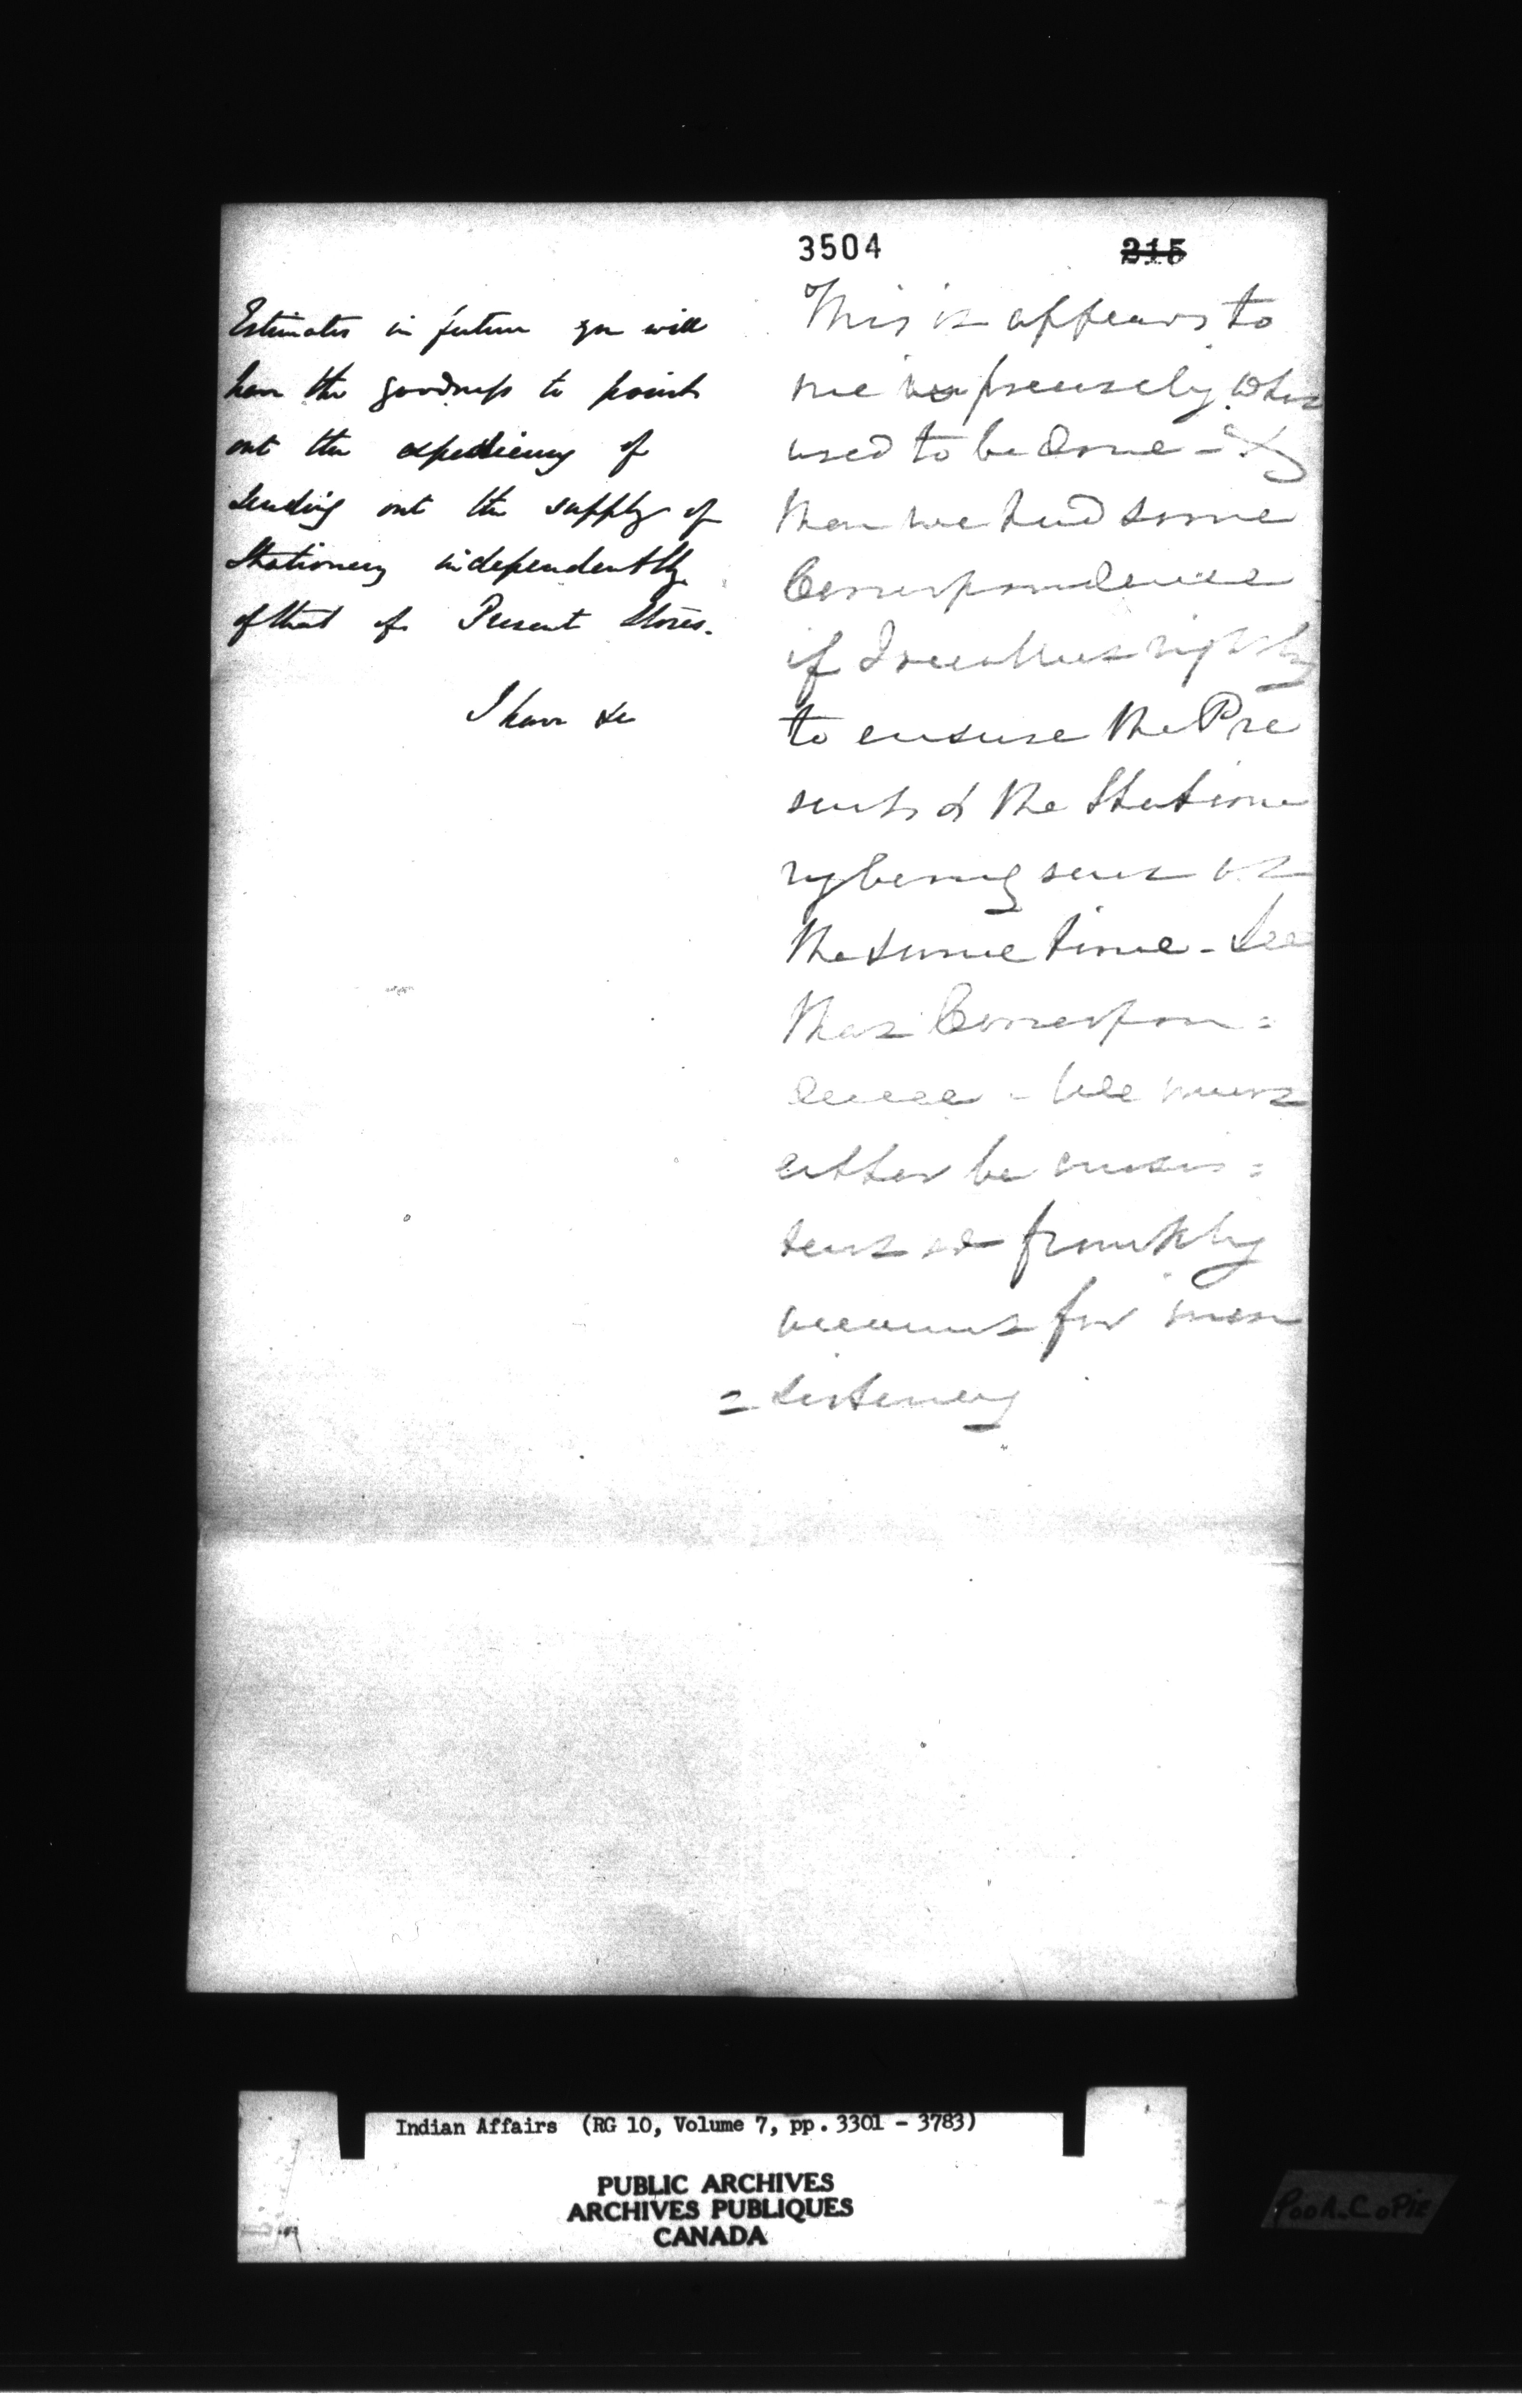 3504
315
Estimates in future you will
have the goodness to point
out the expediency of
sending out the supply of
Stationery independently
of that of Present Stores.
I have &c
This it appears to
me is precisely what
used to be done - &
then we had some
Correspondence
if I recollect rightly
to ensure the Pre
sents & the Statione
ry being sent at
the same time - See
that Correspon=
dence - We must
either be consis=
tent or frankly
account for incon
=sistency
Indian Affairs (RG 10, Volume 7, pp. 3301 - 3783)
PUBLIC ARCHIVES
ARCHIVES PUBLIQUES
CANADA
POOR COPIE